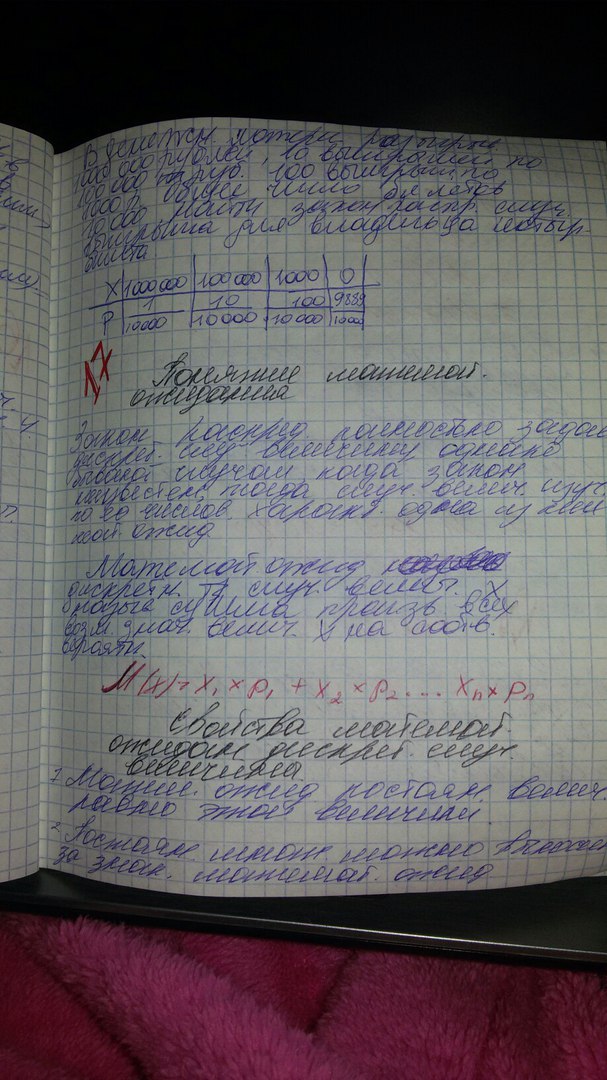 В денежн. лотереи разыгрыв.
1000 000 рублей, 10 выигрышей по
100 000 руб. 100 выигрыш. по
1000 р. общее число билетов
10 000 найти закон распр. случ.
выигрыша для владельца
билета
X | 1000 000 | 100 000 | 1000 | 0
P | 1/10000 | 10/10 000 | 100/10 000 | 9889/10000
Понятие математ.
ожидания
Закон распред полностью задаёт
дискрет. случ величину однако
бывают случаи когда закон
неизвестен, тогда случ. велич. изуч.
по её числов. характ. одна из них
мат ожид
Математ ожид
дискретн. случ. велич. X
назыв сумма произв всех
возм знач. велич. X на соотв.
вероятн.
M(x) = x₁ × p₁ + x₂ × p₂ .... xₙ × pₙ
Свойства математ.
ожидан дискрет. случ.
величины.
1. Матем. ожид постоян велич.
равно этой величины.
2. Постоян. множ можно
за знак. математ. ожид